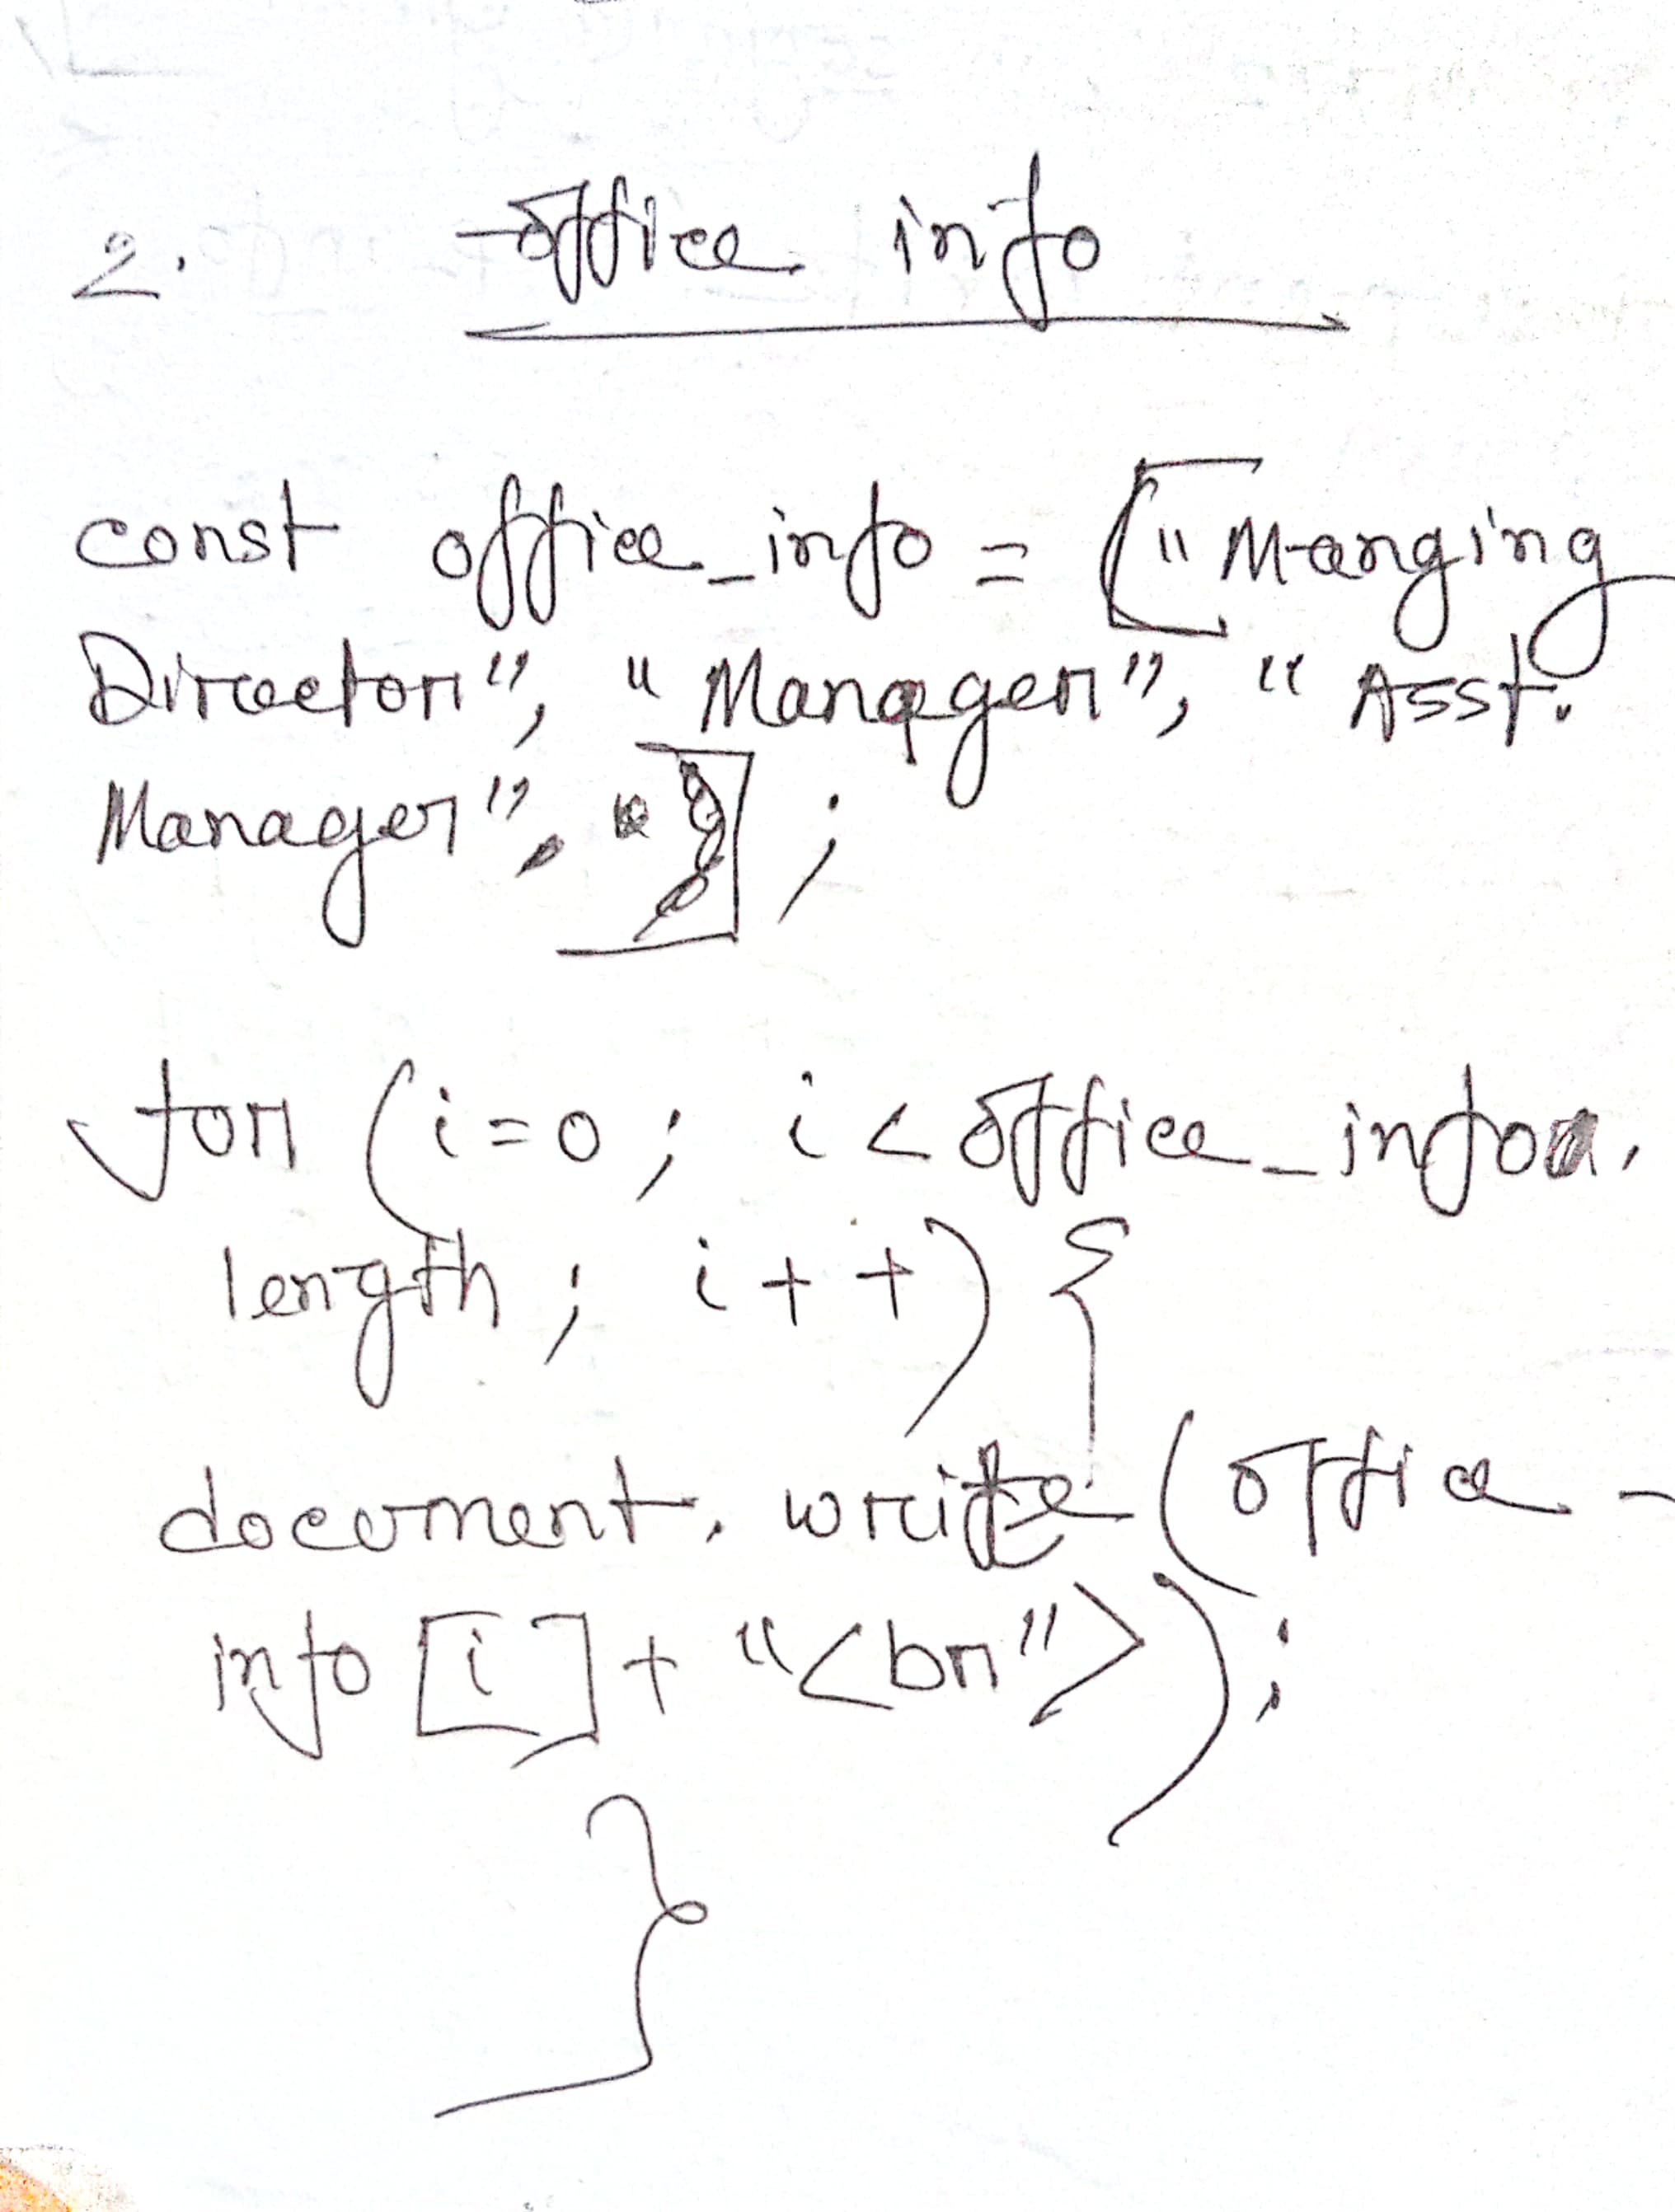 2. office info
const office_info = ["Manging
Director", "Manager", "Asst.
Manager", ];
for (i=0; i<office_info.
length; i++) {
document. write (office_
info [i] + "<br">);
}